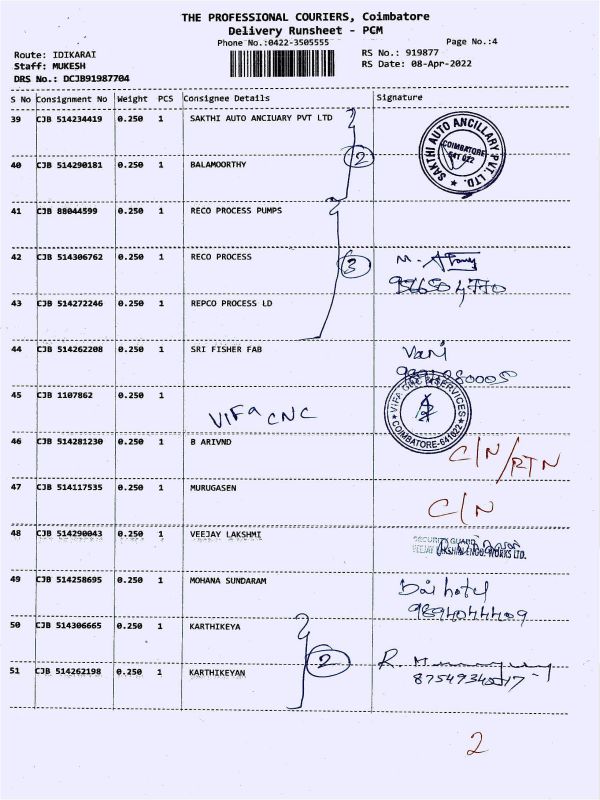 THE PROFESSIONAL COURIERS, Coimbatore
Delivery Runsheet - PCM
Phone No.:0422-3505555 Page No.:4
Route: IDIKARAI RS No.: 919877
Staff: MUKESH RS Date: 08-Apr-2022
DRS No.: DCJB91987704
S No Consignment No Weight PCS Consignee Details Signature
39 CJB 514234419 0.250 1 SAKTHI AUTO ANCIUARY PVT LTD
SAKTHI AUTO ANCILLARY PVT. LTD.
COIMBATORE
641 022
2
40 CJB 514290181 0.250 1 BALAMOORTHY
41 CJB 88044599 0.250 1 RECO PROCESS PUMPS
42 CJB 514306762 0.250 1 RECO PROCESS 3 M.
43 CJB 514272246 0.250 1 REPCO PROCESS LD
44 CJB 514262208 0.250 1 SRI FISHER FAB Vani
45 CJB 1107862 0.250 1
VIFA CNC
VIFA CNC SERVICES
COIMBATORE-641022
46 CJB 514281230 0.250 1 B ARIVND C/N/RTN
47 CJB 514117535 0.250 1 MURUGASEN C/N
48 CJB 514290043 0.250 1 VEEJAY LAKSHMI
SECURITY GUARD
VEEJAY LAKSHMI ENGG. WORKS LTD.
49 CJB 514258695 0.250 1 MOHANA SUNDARAM Dai hotel
50 CJB 514306665 0.250 1 KARTHIKEYA
2 R.
51 CJB 514262198 0.250 1 KARTHIKEYAN
2